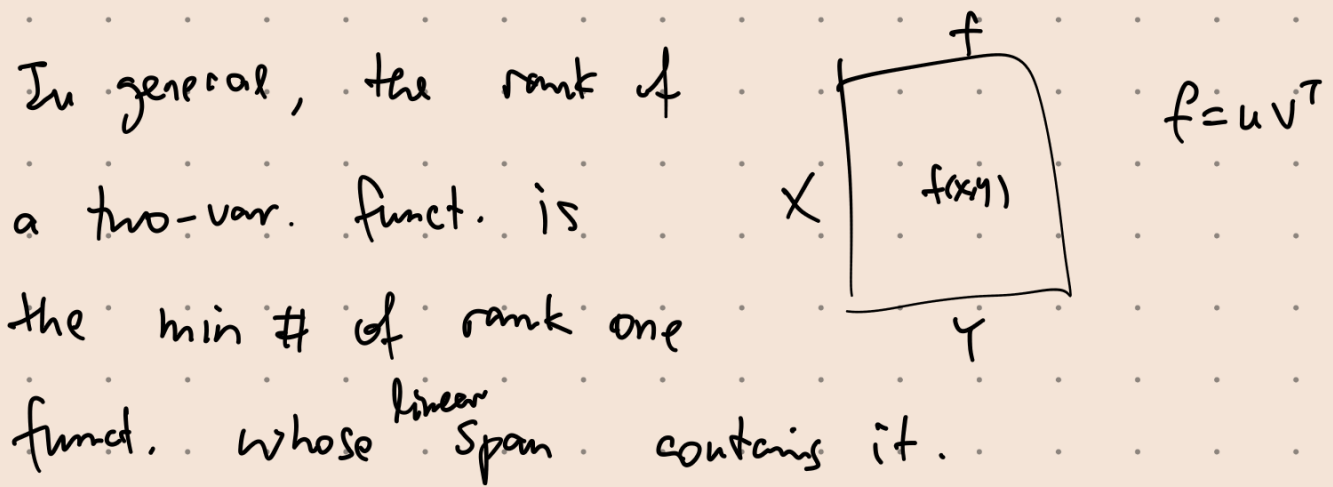 In general, the rank of
a two-var. funct. is
the min # of rank one
funct. whose linear span contains it.
f
X
f(x,y)
Y
f=uv^T